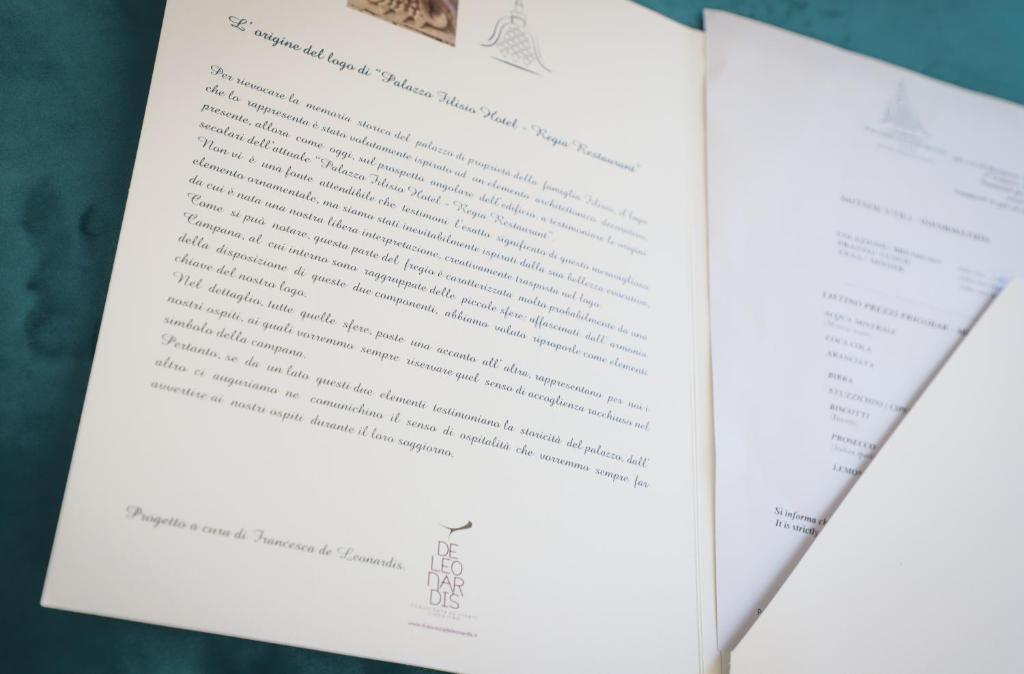 L'origine del logo di "Palazzo Filisio Hotel - Regia Restaurant"
Per rievocare la memoria storica del palazzo di proprietà della famiglia Filisio, il logo
che lo rappresenta è stato volutamente ispirato ad un elemento architettonico decorativo,
presente, allora come oggi, sul prospetto angolare dell'edificio, a testimoniare le origini
secolari dell'attuale "Palazzo Filisio Hotel - Regia Restaurant".
Non vi è una fonte attendibile che testimoni l'esatto significato di questo meraviglioso
elemento ornamentale, ma siamo stati inevitabilmente ispirati dalla sua bellezza evocativa,
da cui è nata una nostra libera interpretazione, creativamente trasposta nel logo.
Come si può notare, questa parte del fregio è caratterizzata molto probabilmente da una
Campana, al cui interno sono raggruppate delle piccole sfere: affascinati dall'armonia
della disposizione di queste due componenti, abbiamo voluto riproporle come elementi
chiave del nostro logo.
Nel dettaglio, tutte quelle sfere, poste una accanto all'altra, rappresentano per noi i
nostri ospiti, ai quali vorremmo sempre riservare quel senso di accoglienza racchiuso nel
simbolo della campana.
Pertanto, se da un lato questi due elementi testimoniano la storicità del palazzo, dall'
altro ci auguriamo ne comunichino il senso di ospitalità che vorremmo sempre far
avvertire ai nostri ospiti durante il loro soggiorno.
Progetto a cura di Francesca de Leonardis.
DE
LEO
NAR
DIS
LISTINO PREZZI FRIGOBAR
ACQUA MINERALE
COCA COLA
ARANCIATA
BIRRA
STUZZICHINI
BISCOTTI
PROSECCO
Si informa
It is strictly